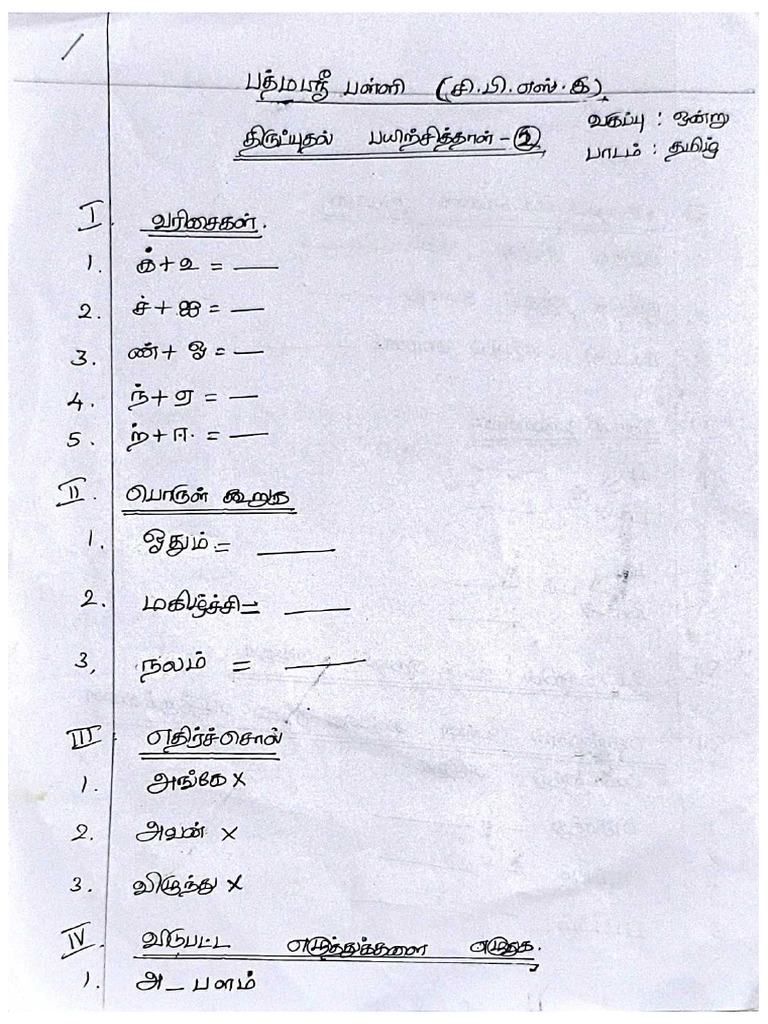 பத்மபஸ்ரீ பள்ளி (சி.பி.எஸ்.இ)
வகுப்பு : ஒன்று
திருப்புதல் பயிற்சித்தாள் - ②
பாடம் : தமிழ்
I. வரிசைகள்.
1. க்+உ = —
2. ச்+ஐ = —
3. ண்+ஓ = —
4. ந்+ஏ = —
5. ற்+ஈ. = —
II. பொருள் கூறுக
1. ஓதும் = ———
2. மகிழ்ச்சி = ———
3, நலம் = ———
III எதிர்ச்சொல்
1. அங்கே x
2. அவன் x
3. விழுந்து x
IV. விடுபட்ட எழுத்துக்களை எழுதுக.
1. அ_ பளம்